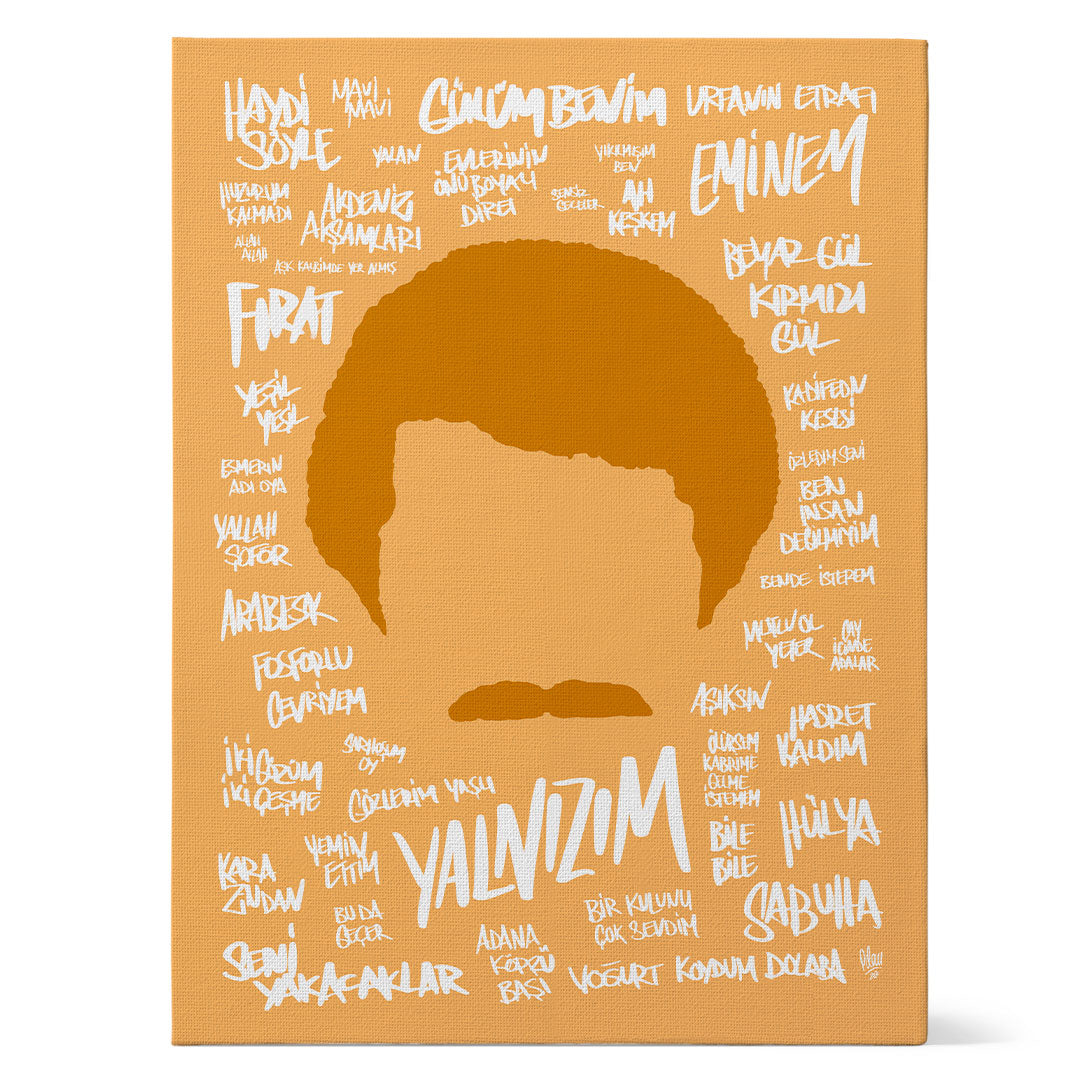 HAYDİ
SÖYLE
MAVİ
MAVİ
GÜLÜM BENİM
URFANIN ETRAFI
YALAN
EVLERİNİN
ÖNÜ BOYALI
DİREI
YIKILMIŞIM
BEN
EMİNEM
HUZURUM
KALMADI
AKDENİZ
AKŞAMLARI
SENSİZ
GECELER
AH
KEŞKEM
ALLAH
ALLAH
AŞK KALBİMDE YER ALMIŞ
BEYAR GÜL
KIRMIZI
GÜL
FIRAT
YEŞİL
YEŞİL
KADİFEDN
KESESİ
ESMERIN
ADI OYA
ÖZLEDIM SENİ
BEN
İNSAN
DEĞİLMİYİM
YALLAH
ŞOFÖR
BENDE İSTEREM
ARABESK
MUTLU OL
YETER
ÇAY
İÇİNDE
ADALAR
FOSFORLU
CEVRİYEM
AŞIKSIN
HASRET
KALDIM
İKİ GÖZÜM
İKİ ÇEŞME
SARHOŞUM
OY
GÖZLERİM YAŞLI
ÖLÜRSEM
KABRIME
GELME
İSTEMEM
YALNIZIM
HÜLYA
YEMİN
ETTİM
BİLE
BİLE
KARA
ZINDAN
BU DA
GEÇER
BİR KULUNU
ÇOK SEVDİM
SABUHA
SENİ
YAKACAKLAR
ADANA
KÖPRÜ
BAŞI
YOĞURT KOYDUM DOLABA